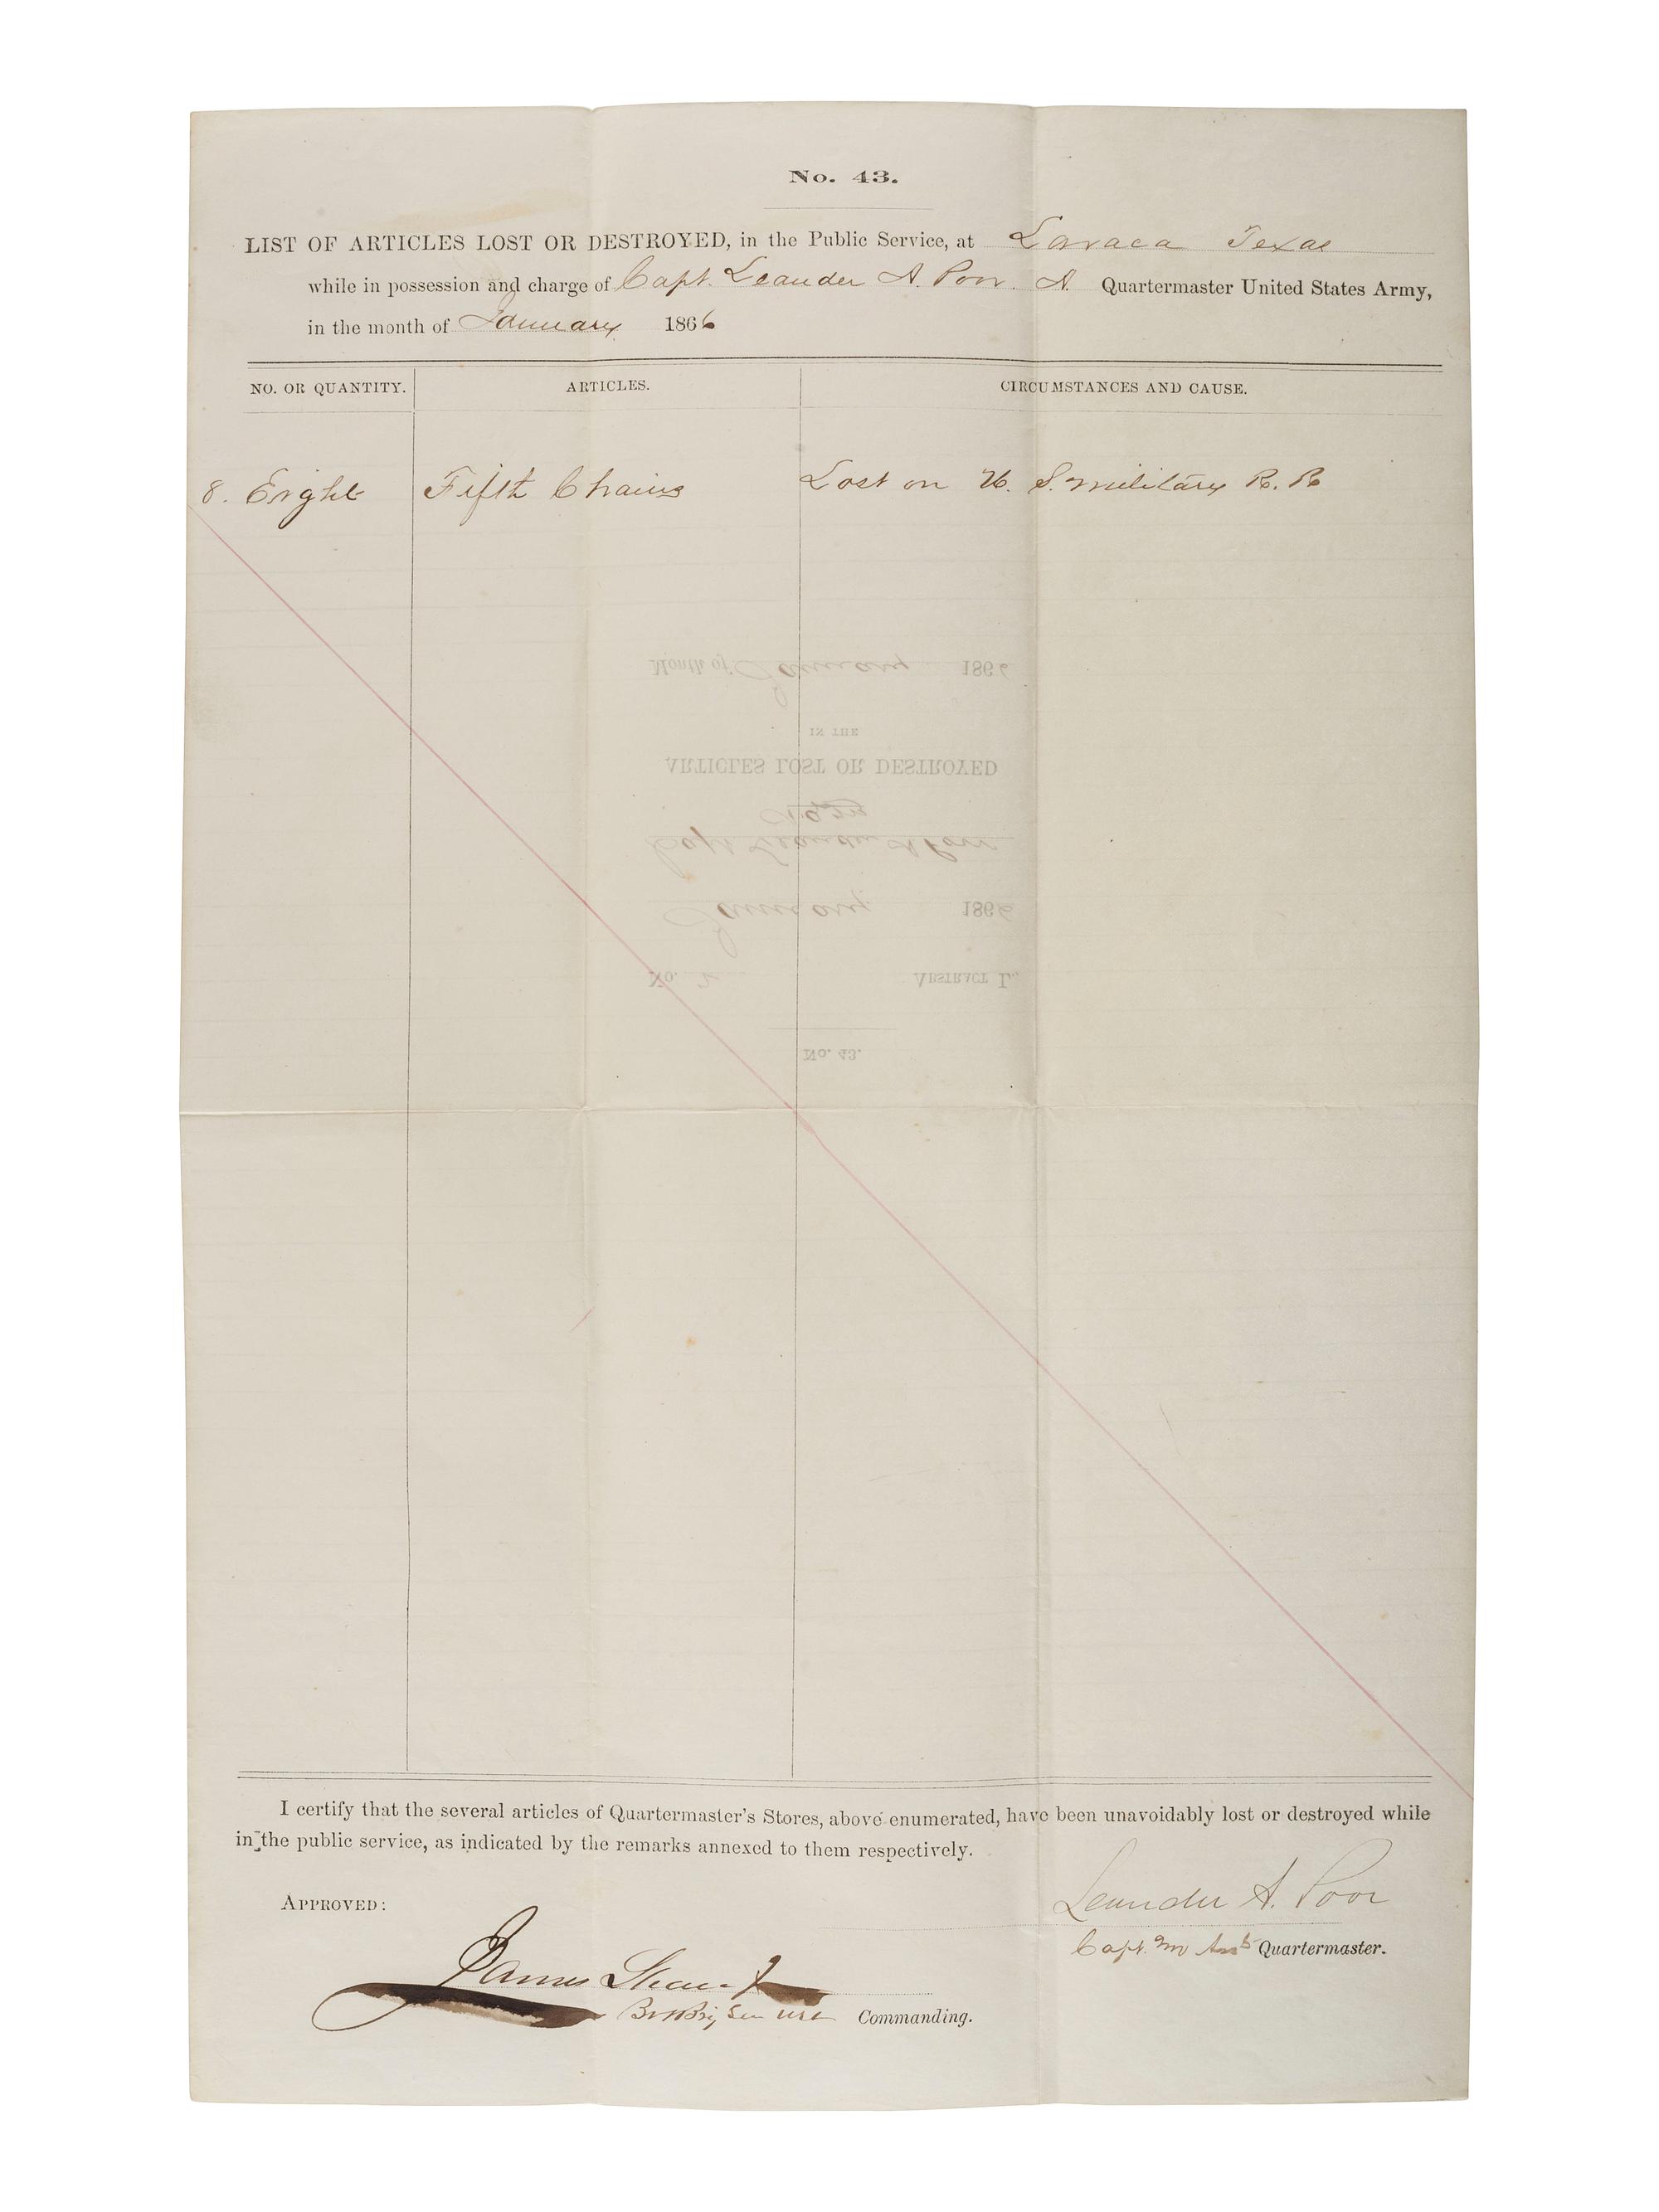 No. 43.
LIST OF ARTICLES LOST OR DESTROYED, in the Public Service, at Lavaca Texas
while in possession and charge of Capt. Leander A. Poor. A. Quartermaster United States Army,
in the month of January 1866
NO. OR QUANTITY. ARTICLES. CIRCUMSTANCES AND CAUSE.
8. Eight Fifth Chains Lost on U. S. military R. R
Month of January 1866
IN THE
ARTICLES LOST OR DESTROYED
Capt Leander A Poor
January 1866
No. 2 ABSTRACT L.
No. 43.
I certify that the several articles of Quartermaster's Stores, above enumerated, have been unavoidably lost or destroyed while
in the public service, as indicated by the remarks annexed to them respectively.
Leander A. Poor
APPROVED:
Capt. and Asst Quartermaster.
James Shaw Jr
Bvt Brig Gen USV Commanding.